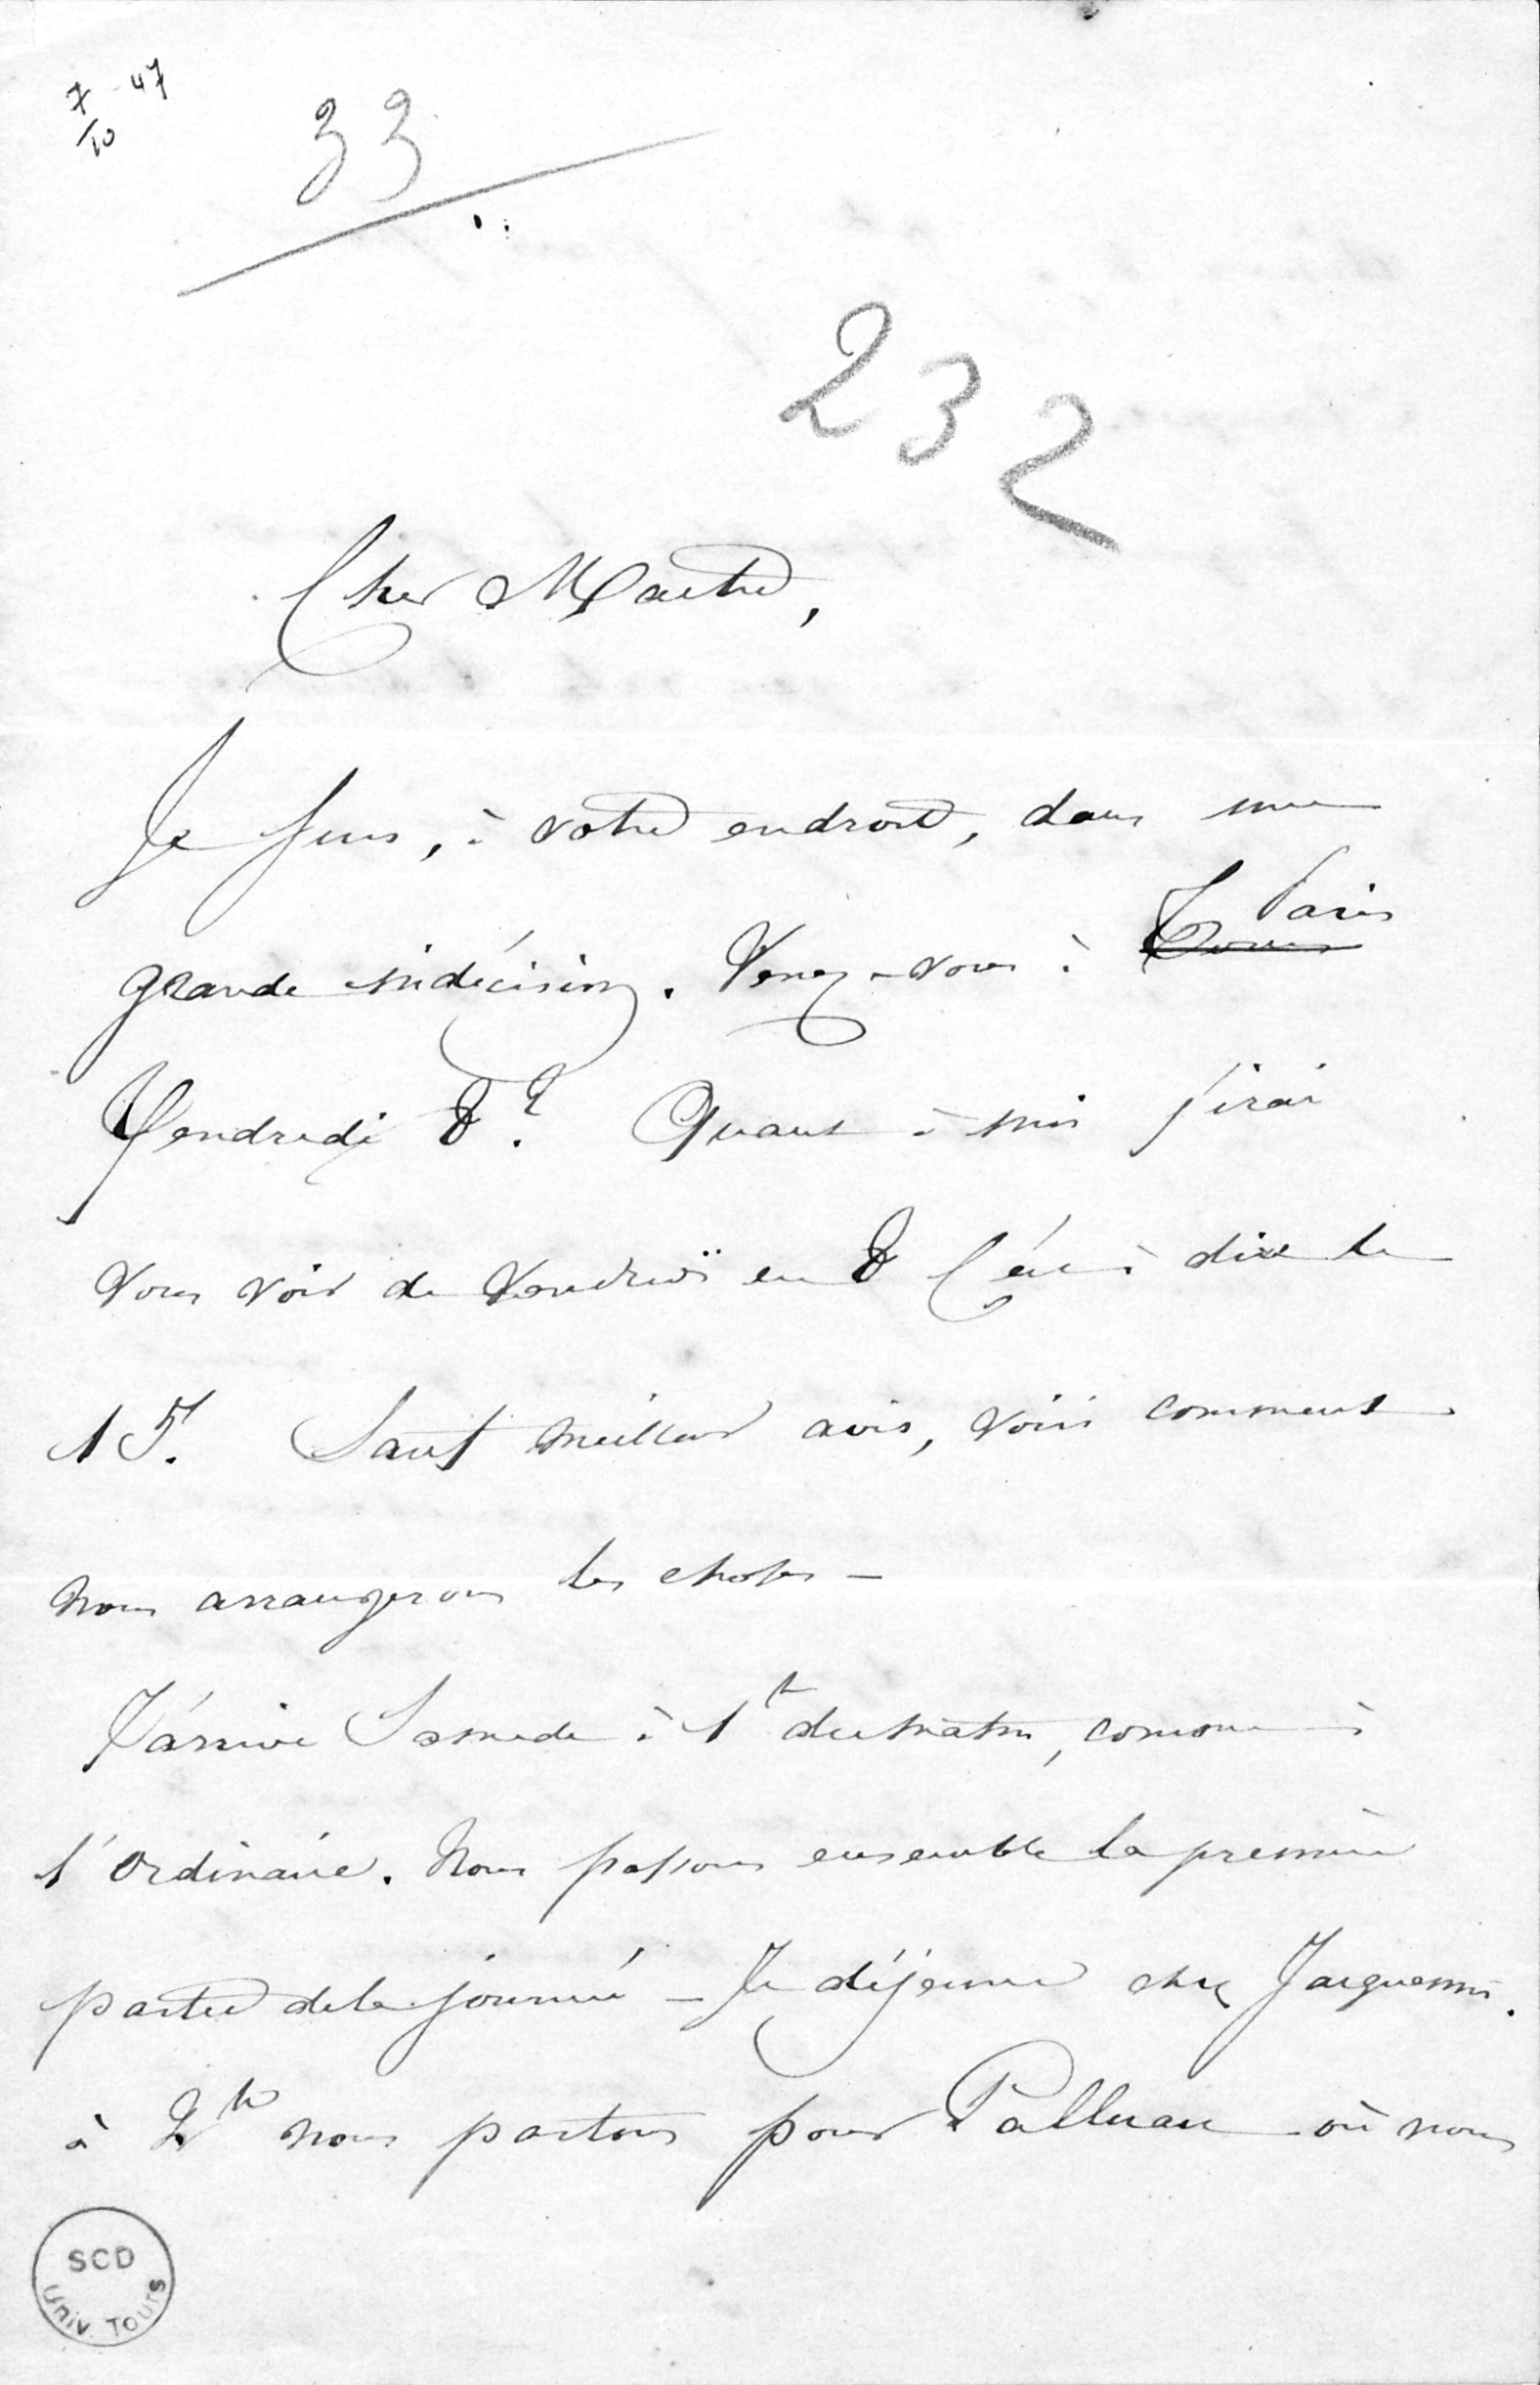 7/10 - 47
33
232
Cher Maitre,
Je suis, à votre endroit, dans une
grande indécision. Venez-vous à ~~Tours~~ Paris
Vendredi 8? Quant à moi j'irai
vous voir de Vendredi en 8 C'est à dire le
15. Sauf meilleur avis, voici comment
nous arrangerons les choses —
J'arrive Samedi à 1h du matin, comme à
l'ordinaire. Nous passons ensemble la première
partie de la journée — Je déjeune chez Jacquemin.
à 2h nous partons pour Palluau où nous
SCD
Univ. Tours